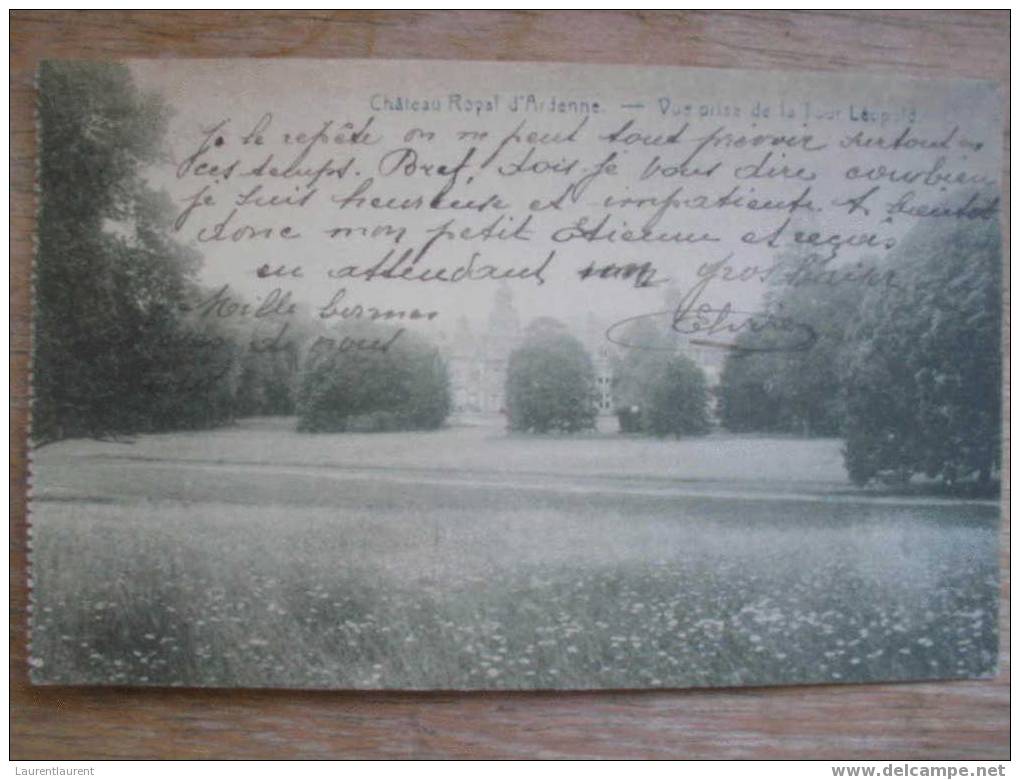 Château Royal d'Ardenne. — Vue prise de la Tour Léopold.
Je le repète on ne peut tout prévoir surtout en
ces temps. Bref, dois-je vous dire combien
je suis heureuse et impatiente. A bientot
donc mon petit Etienne et reçois
en attendant mon gros baiser
Elvire
Mille bonnes
de nous
Laurentlaurent
www.delcampe.net